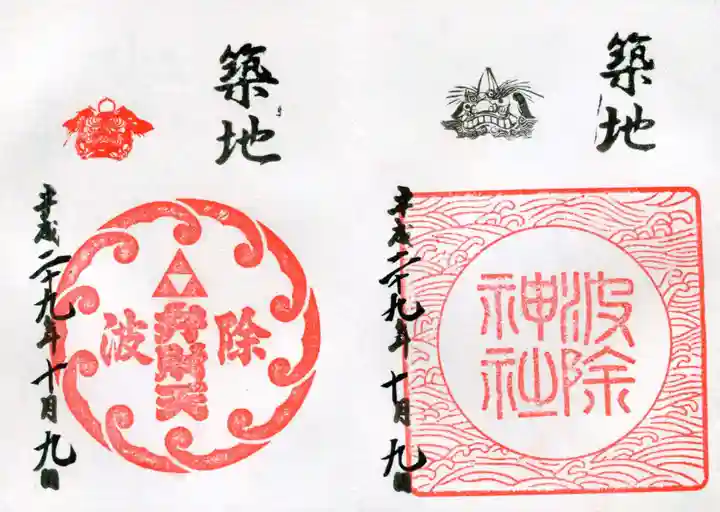 築地
波除神社
平成二十九年十月九日
築地
波除
弁財天
平成二十九年十月九日